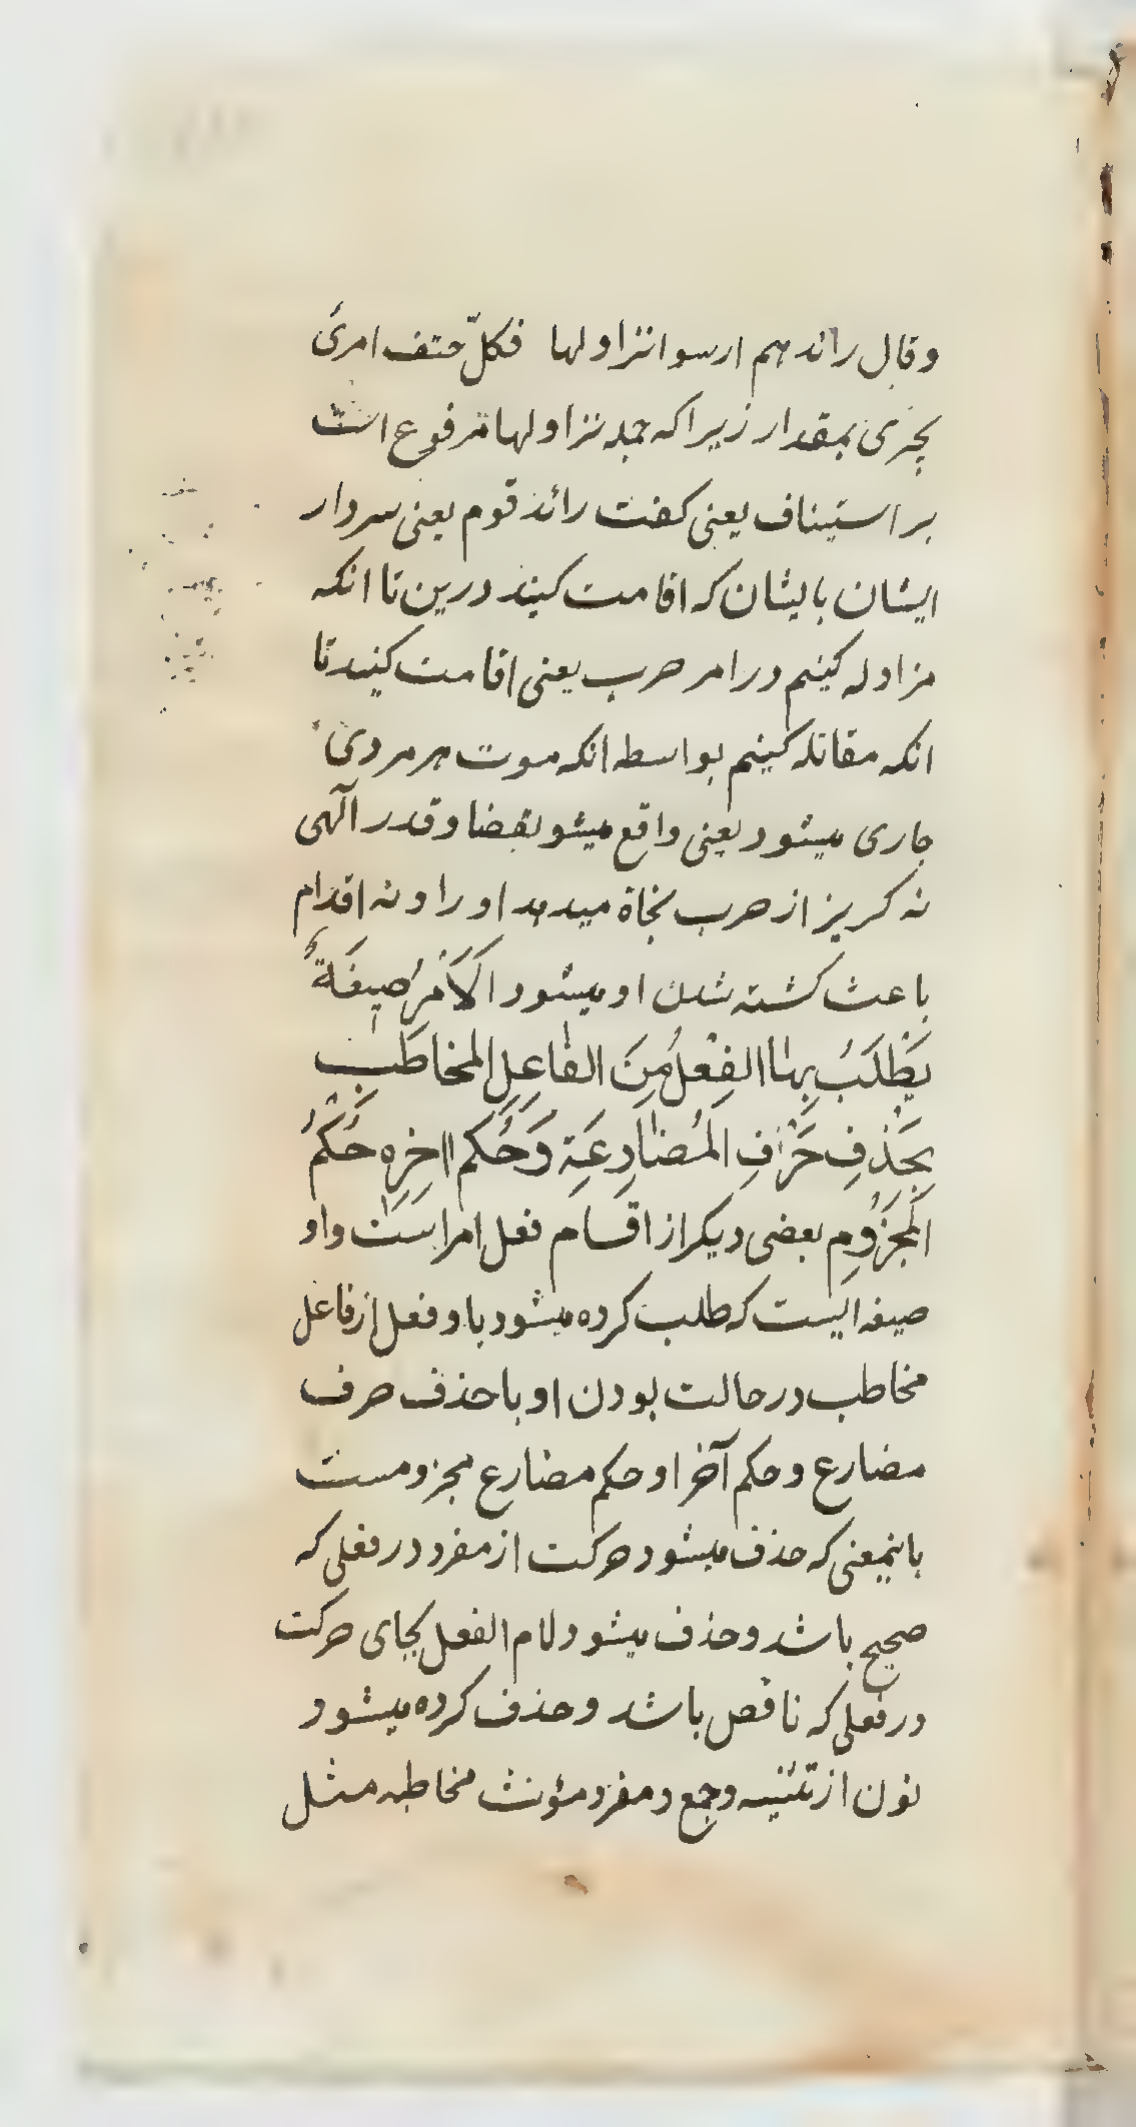 وقال رائدهم ارسوا نزاولها فكلّ حتف امرئ
یجری بمقدار زیرا که جمله نزاولها مرفوع است
بر استیناف یعنی کفت رائد قوم یعنی سردار
ایشان بایشان که اقامت کنید درین تا انکه
مزاوله کنیم در امر حرب یعنی اقامت کنید تا
انکه مقاتله کنیم بواسطه انکه موت هر مردی
جاری میشود یعنی واقع میشو بقضا و قدر آلهی
نه کریز از حرب نجاة میدهد او را و نه اقدام
باعث کشته شدن او میشود اَلْاَمْرُ صیغَةٌ
یُطْلَبُ بِهَا الفِعْلُ مِنَ الفاعِلِ المخاطَبِ
بِحَذْفِ حَرْفِ المُضارِعَةِ وَحُكْمُ اخِرِهِ حُكْمُ
المَجْزُومِ بعضی دیکر از اقسام فعل امر است واو
صیغه ایست که طلب کرده میشود باو فعل از فاعل
مخاطب در حالت بودن او با حذف حرف
مضارع و حکم آخر او حکم مضارع مجزومست
باینمعنی که حذف میشود حرکت از مفرد در فعلی که
صحیح باشد و حذف میشود لام الفعل بجای حرکت
در فعلی که ناقص باشد و حذف کرده میشود
نون از تثنیه و جمع و مفرد مؤنث مخاطبه مثل